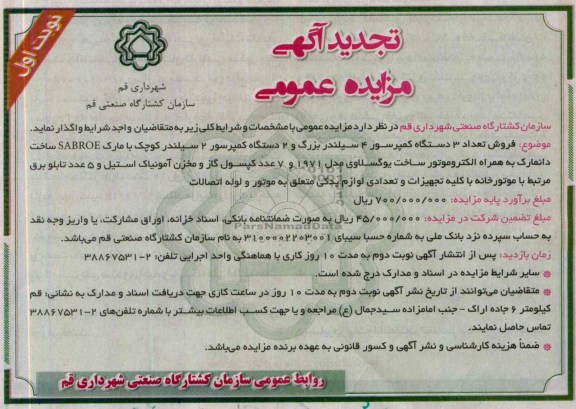 نوبت اول
تجدید آگهی
مزایده عمومی
شهرداری قم
سازمان کشتارگاه صنعتی قم
سازمان کشتارگاه صنعتی شهرداری قم در نظر دارد مزایده عمومی با مشخصات و شرایط کلی زیر به متقاضیان واجد شرایط واگذار نماید.
موضوع: فروش تعداد ۳ دستگاه کمپرسور ۴ سیلندر بزرگ و ۲ دستگاه کمپرسور ۲ سیلندر کوچک با مارک SABROE ساخت
دانمارک به همراه الکتروموتور ساخت یوگسلاوی مدل ۱۹۷۱ و ۷ عدد کپسول گاز و مخزن آمونیاک استیل و ۵ عدد تابلو برق
مرتبط با موتورخانه با کلیه تجهیزات و تعدادی لوازم یدکی متعلق به موتور و لوله اتصالات
مبلغ برآورد پایه مزایده: ۷۰۰/۰۰۰/۰۰۰ ریال
مبلغ تضمین شرکت در مزایده: ۴۵/۰۰۰/۰۰۰ ریال به صورت ضمانتنامه بانکی، اسناد خزانه، اوراق مشارکت، یا واریز وجه نقد
به حساب سپرده نزد بانک ملی به شماره حسبا سیبای ۳۱۰۰۰۰۲۲۰۳۰۰۱ به نام سازمان کشتارگاه صنعتی قم می‌باشد.
زمان بازدید: پس از انتشار آگهی نوبت دوم به مدت ۱۰ روز کاری با هماهنگی واحد اجرایی تلفن: ۲-۳۸۸۶۷۵۳۱
* سایر شرایط مزایده در اسناد و مدارک درج شده است.
* متقاضیان می‌توانند از تاریخ نشر آگهی نوبت دوم به مدت ۱۰ روز در ساعت کاری جهت دریافت اسناد و مدارک به نشانی: قم
کیلومتر ۶ جاده اراک - جنب امامزاده سیدجمال (ع) مراجعه و یا جهت کسب اطلاعات بیشتر با شماره تلفن‌های ۲-۳۸۸۶۷۵۳۱
تماس حاصل نمایند.
* ضمناً هزینه کارشناسی و نشر آگهی و کسور قانونی به عهده برنده مزایده می‌باشد.
روابط عمومی سازمان کشتارگاه صنعتی شهرداری قم
ParsNamadData